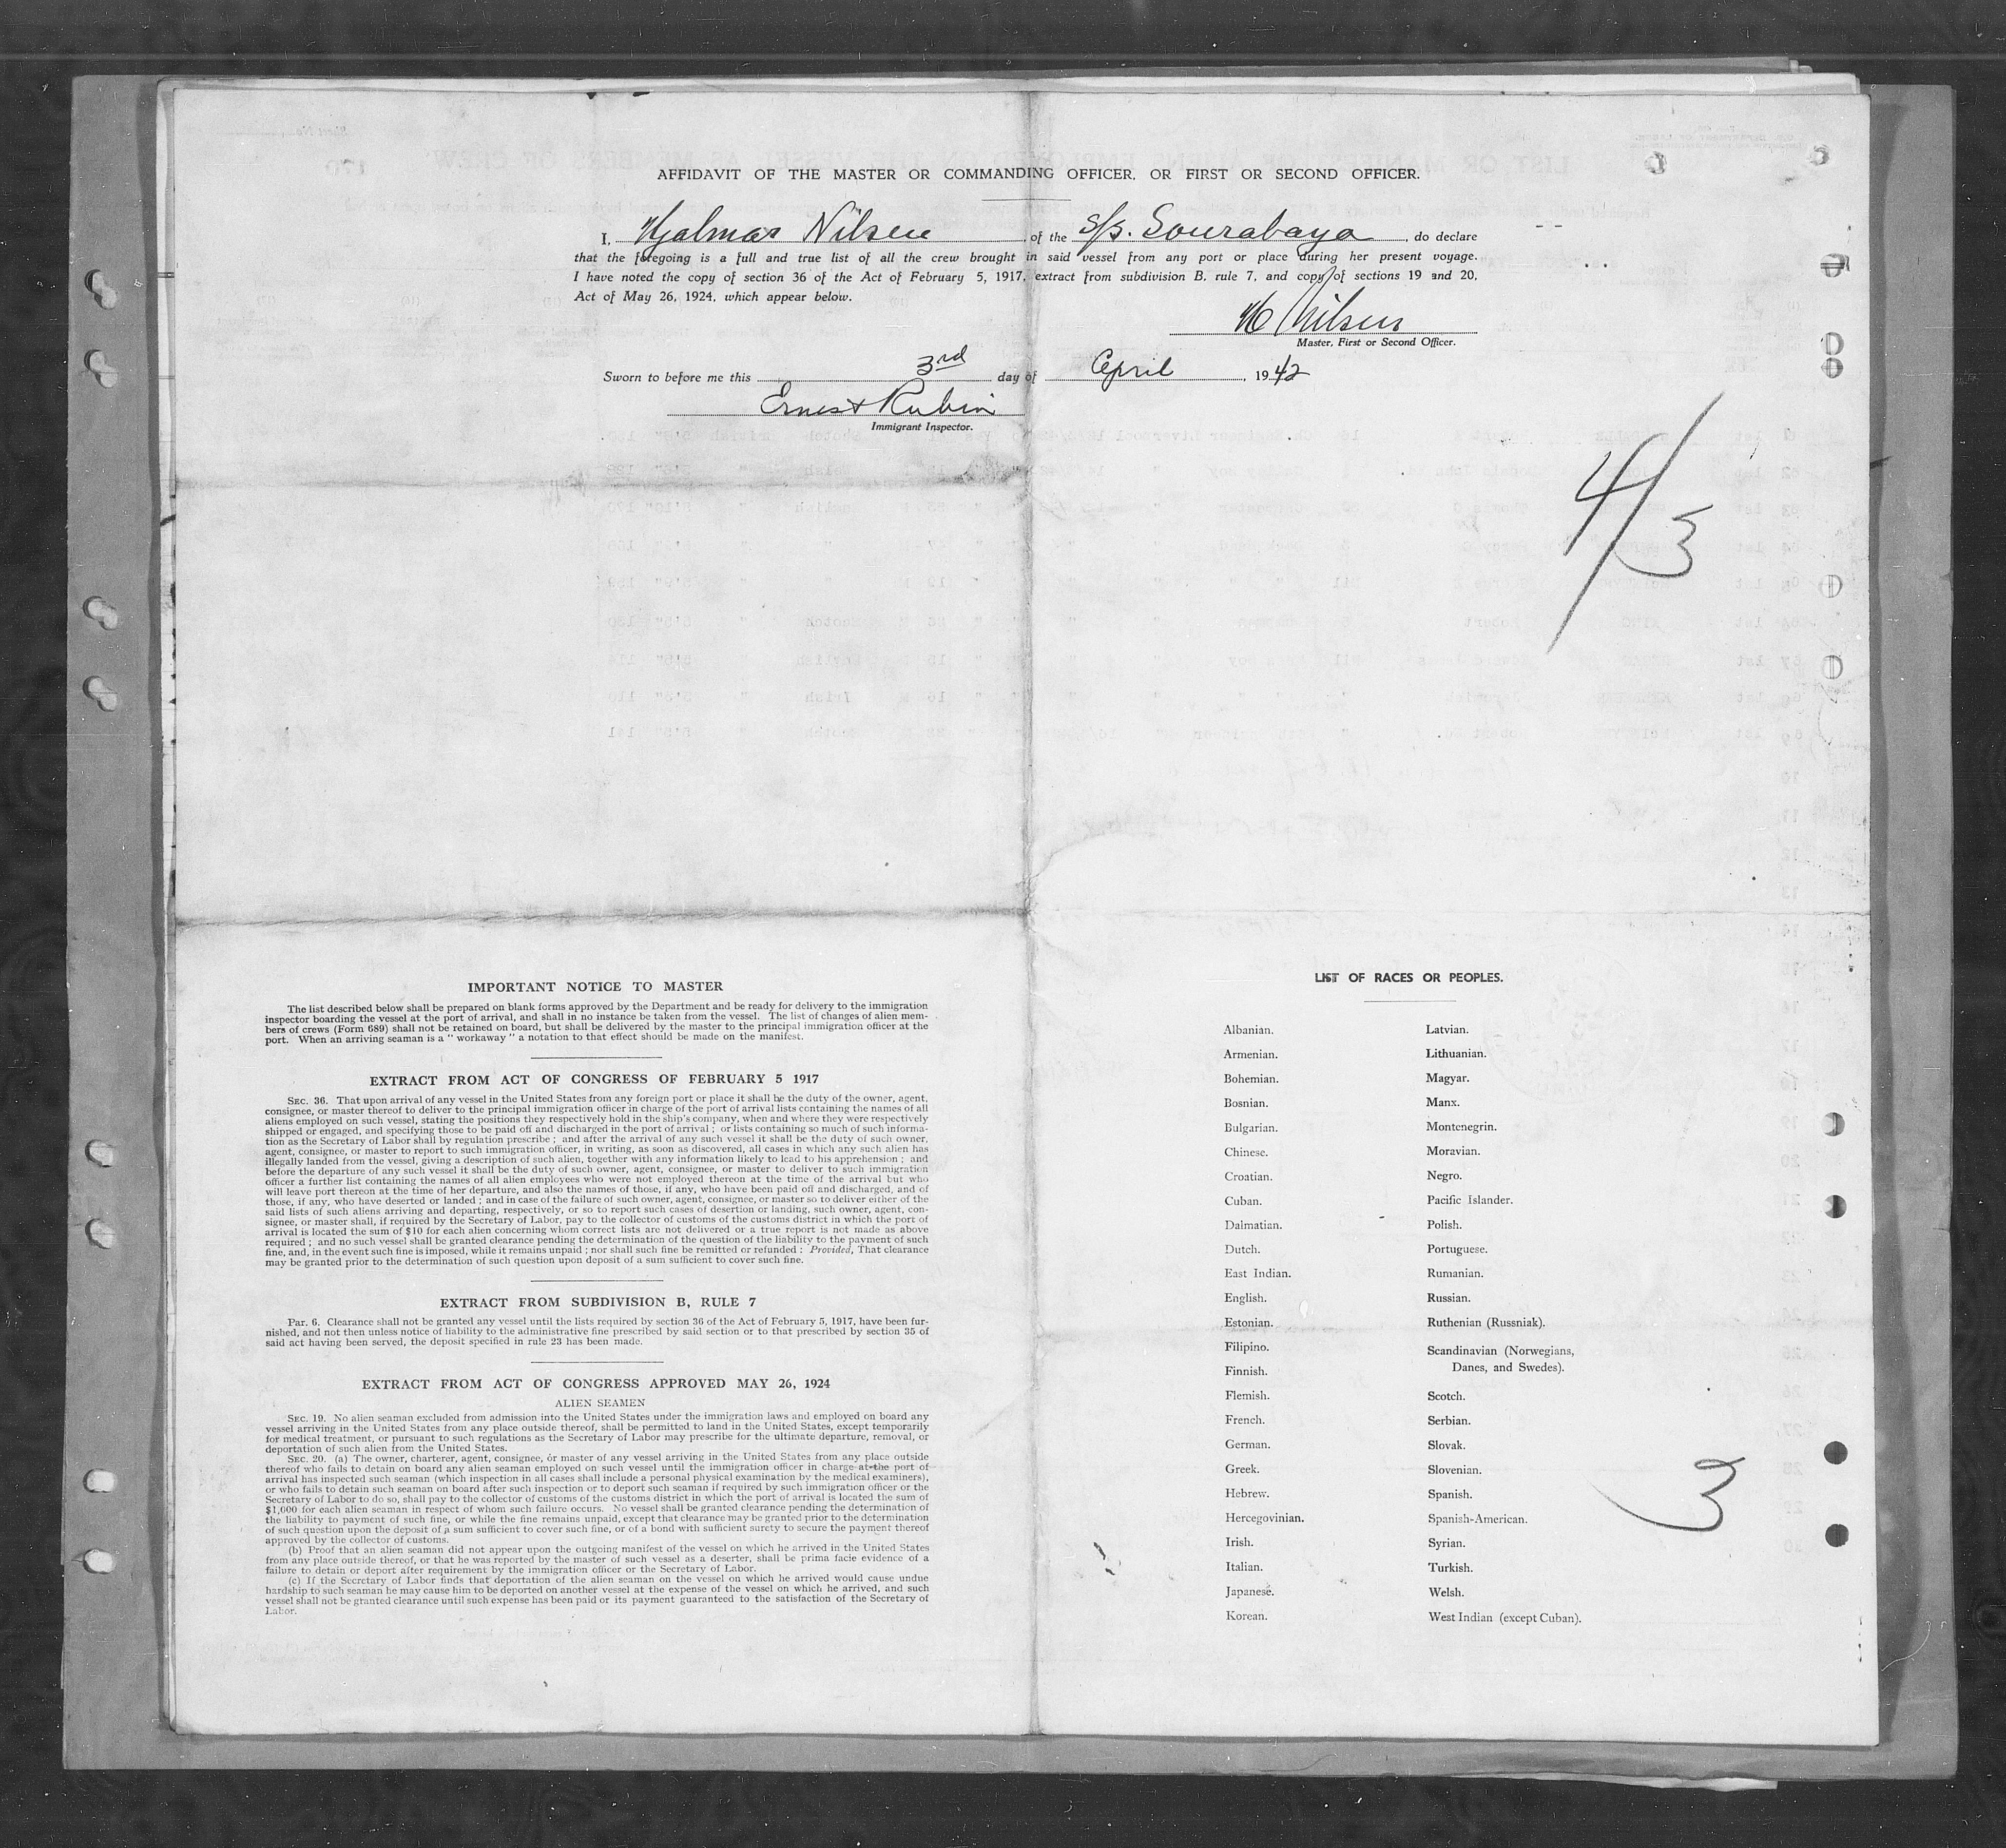 AFFIDAVIT OF THE MASTER OR COMMANDING OFFICER, OR FIRST OR SECOND OFFICER.
I, Hjalmar Nilsen of the S/S. Sourabaya, do declare
that the foregoing is a full and true list of all the crew brought in said vessel from any port or place during her present voyage.
I have noted the copy of section 36 of the Act of February 5, 1917, extract from subdivision B, rule 7, and copy of sections 19 and 20,
Act of May 26, 1924, which appear below.
H Nilsen
Master, First or Second Officer.
Sworn to before me this 3rd day of April, 1942
Ernest Rubin
Immigrant Inspector.
4/3
IMPORTANT NOTICE TO MASTER
The list described below shall be prepared on blank forms approved by the Department and be ready for delivery to the immigration
inspector boarding the vessel at the port of arrival, and shall in no instance be taken from the vessel. The list of changes of alien mem-
bers of crews (Form 689) shall not be retained on board, but shall be delivered by the master to the principal immigration officer at the
port. When an arriving seaman is a " workaway " a notation to that effect should be made on the manifest.
EXTRACT FROM ACT OF CONGRESS OF FEBRUARY 5 1917
SEC. 36. That upon arrival of any vessel in the United States from any foreign port or place it shall be the duty of the owner, agent,
consignee, or master thereof to deliver to the principal immigration officer in charge of the port of arrival lists containing the names of all
aliens employed on such vessel, stating the positions they respectively hold in the ship's company, when and where they were respectively
shipped or engaged, and specifying those to be paid off and discharged in the port of arrival ; or lists containing so much of such informa-
tion as the Secretary of Labor shall by regulation prescribe ; and after the arrival of any such vessel it shall be the duty of such owner,
agent, consignee, or master to report to such immigration officer, in writing, as soon as discovered, all cases in which any such alien has
illegally landed from the vessel, giving a description of such alien, together with any information likely to lead to his apprehension ; and
before the departure of any such vessel it shall be the duty of such owner, agent, consignee, or master to deliver to such immigration
officer a further list containing the names of all alien employees who were not employed thereon at the time of the arrival but who
will leave port thereon at the time of her departure, and also the names of those, if any, who have been paid off and discharged, and of
those, if any, who have deserted or landed ; and in case of the failure of such owner, agent, consignee, or master so to deliver either of the
said lists of such aliens arriving and departing, respectively, or so to report such cases of desertion or landing, such owner, agent, con-
signee, or master shall, if required by the Secretary of Labor, pay to the collector of customs of the customs district in which the port of
arrival is located the sum of $10 for each alien concerning whom correct lists are not delivered or a true report is not made as above
required ; and no such vessel shall be granted clearance pending the determination of the question of the liability to the payment of such
fine, and, in the event such fine is imposed, while it remains unpaid ; nor shall such fine be remitted or refunded : Provided, That clearance
may be granted prior to the determination of such question upon deposit of a sum sufficient to cover such fine.
EXTRACT FROM SUBDIVISION B, RULE 7
Par. 6. Clearance shall not be granted any vessel until the lists required by section 36 of the Act of February 5, 1917, have been fur-
nished, and not then unless notice of liability to the administrative fine prescribed by said section or to that prescribed by section 35 of
said act having been served, the deposit specified in rule 23 has been made.
EXTRACT FROM ACT OF CONGRESS APPROVED MAY 26, 1924
ALIEN SEAMEN
SEC. 19. No alien seaman excluded from admission into the United States under the immigration laws and employed on board any
vessel arriving in the United States from any place outside thereof, shall be permitted to land in the United States, except temporarily
for medical treatment, or pursuant to such regulations as the Secretary of Labor may prescribe for the ultimate departure, removal, or
deportation of such alien from the United States.
SEC. 20. (a) The owner, charterer, agent, consignee, or master of any vessel arriving in the United States from any place outside
thereof who fails to detain on board any alien seaman employed on such vessel until the immigration officer in charge at the port of
arrival has inspected such seaman (which inspection in all cases shall include a personal physical examination by the medical examiners),
or who fails to detain such seaman on board after such inspection or to deport such seaman if required by such immigration officer or the
Secretary of Labor to do so, shall pay to the collector of customs of the customs district in which the port of arrival is located the sum of
$1,000 for each alien seaman in respect of whom such failure occurs. No vessel shall be granted clearance pending the determination of
the liability to payment of such fine, or while the fine remains unpaid, except that clearance may be granted prior to the determination
of such question upon the deposit of a sum sufficient to cover such fine, or of a bond with sufficient surety to secure the payment thereof
approved by the collector of customs.
(b) Proof that an alien seaman did not appear upon the outgoing manifest of the vessel on which he arrived in the United States
from any place outside thereof, or that he was reported by the master of such vessel as a deserter, shall be prima facie evidence of a
failure to detain or deport after requirement by the immigration officer or the Secretary of Labor.
(c) If the Secretary of Labor finds that deportation of the alien seaman on the vessel on which he arrived would cause undue
hardship to such seaman he may cause him to be deported on another vessel at the expense of the vessel on which he arrived, and such
vessel shall not be granted clearance until such expense has been paid or its payment guaranteed to the satisfaction of the Secretary of
Labor.
LIST OF RACES OR PEOPLES.
Albanian.
Armenian.
Bohemian.
Bosnian.
Bulgarian.
Chinese.
Croatian.
Cuban.
Dalmatian.
Dutch.
East Indian.
English.
Estonian.
Filipino.
Finnish.
Flemish.
French.
German.
Greek.
Hebrew.
Hercegovinian.
Irish.
Italian.
Japanese.
Korean.
Latvian.
Lithuanian.
Magyar.
Manx.
Montenegrin.
Moravian.
Negro.
Pacific Islander.
Polish.
Portuguese.
Rumanian.
Russian.
Ruthenian (Russniak).
Scandinavian (Norwegians,
Danes, and Swedes).
Scotch.
Serbian.
Slovak.
Slovenian.
Spanish.
Spanish-American.
Syrian.
Turkish.
Welsh.
West Indian (except Cuban).
3